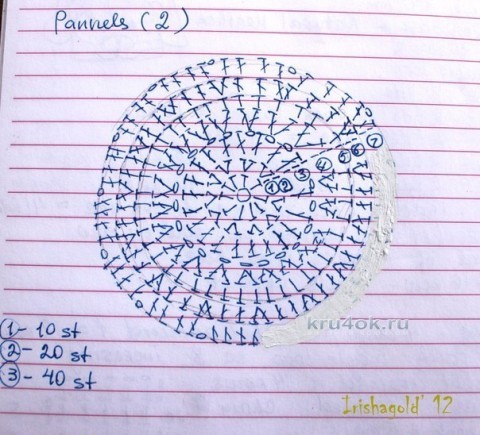 Pannels (2)
① ② ③ ④ ⑤ ⑥ ⑦
kru4ok.ru
① - 10 st
② - 20 st
③ - 40 st
Irishagold' 12